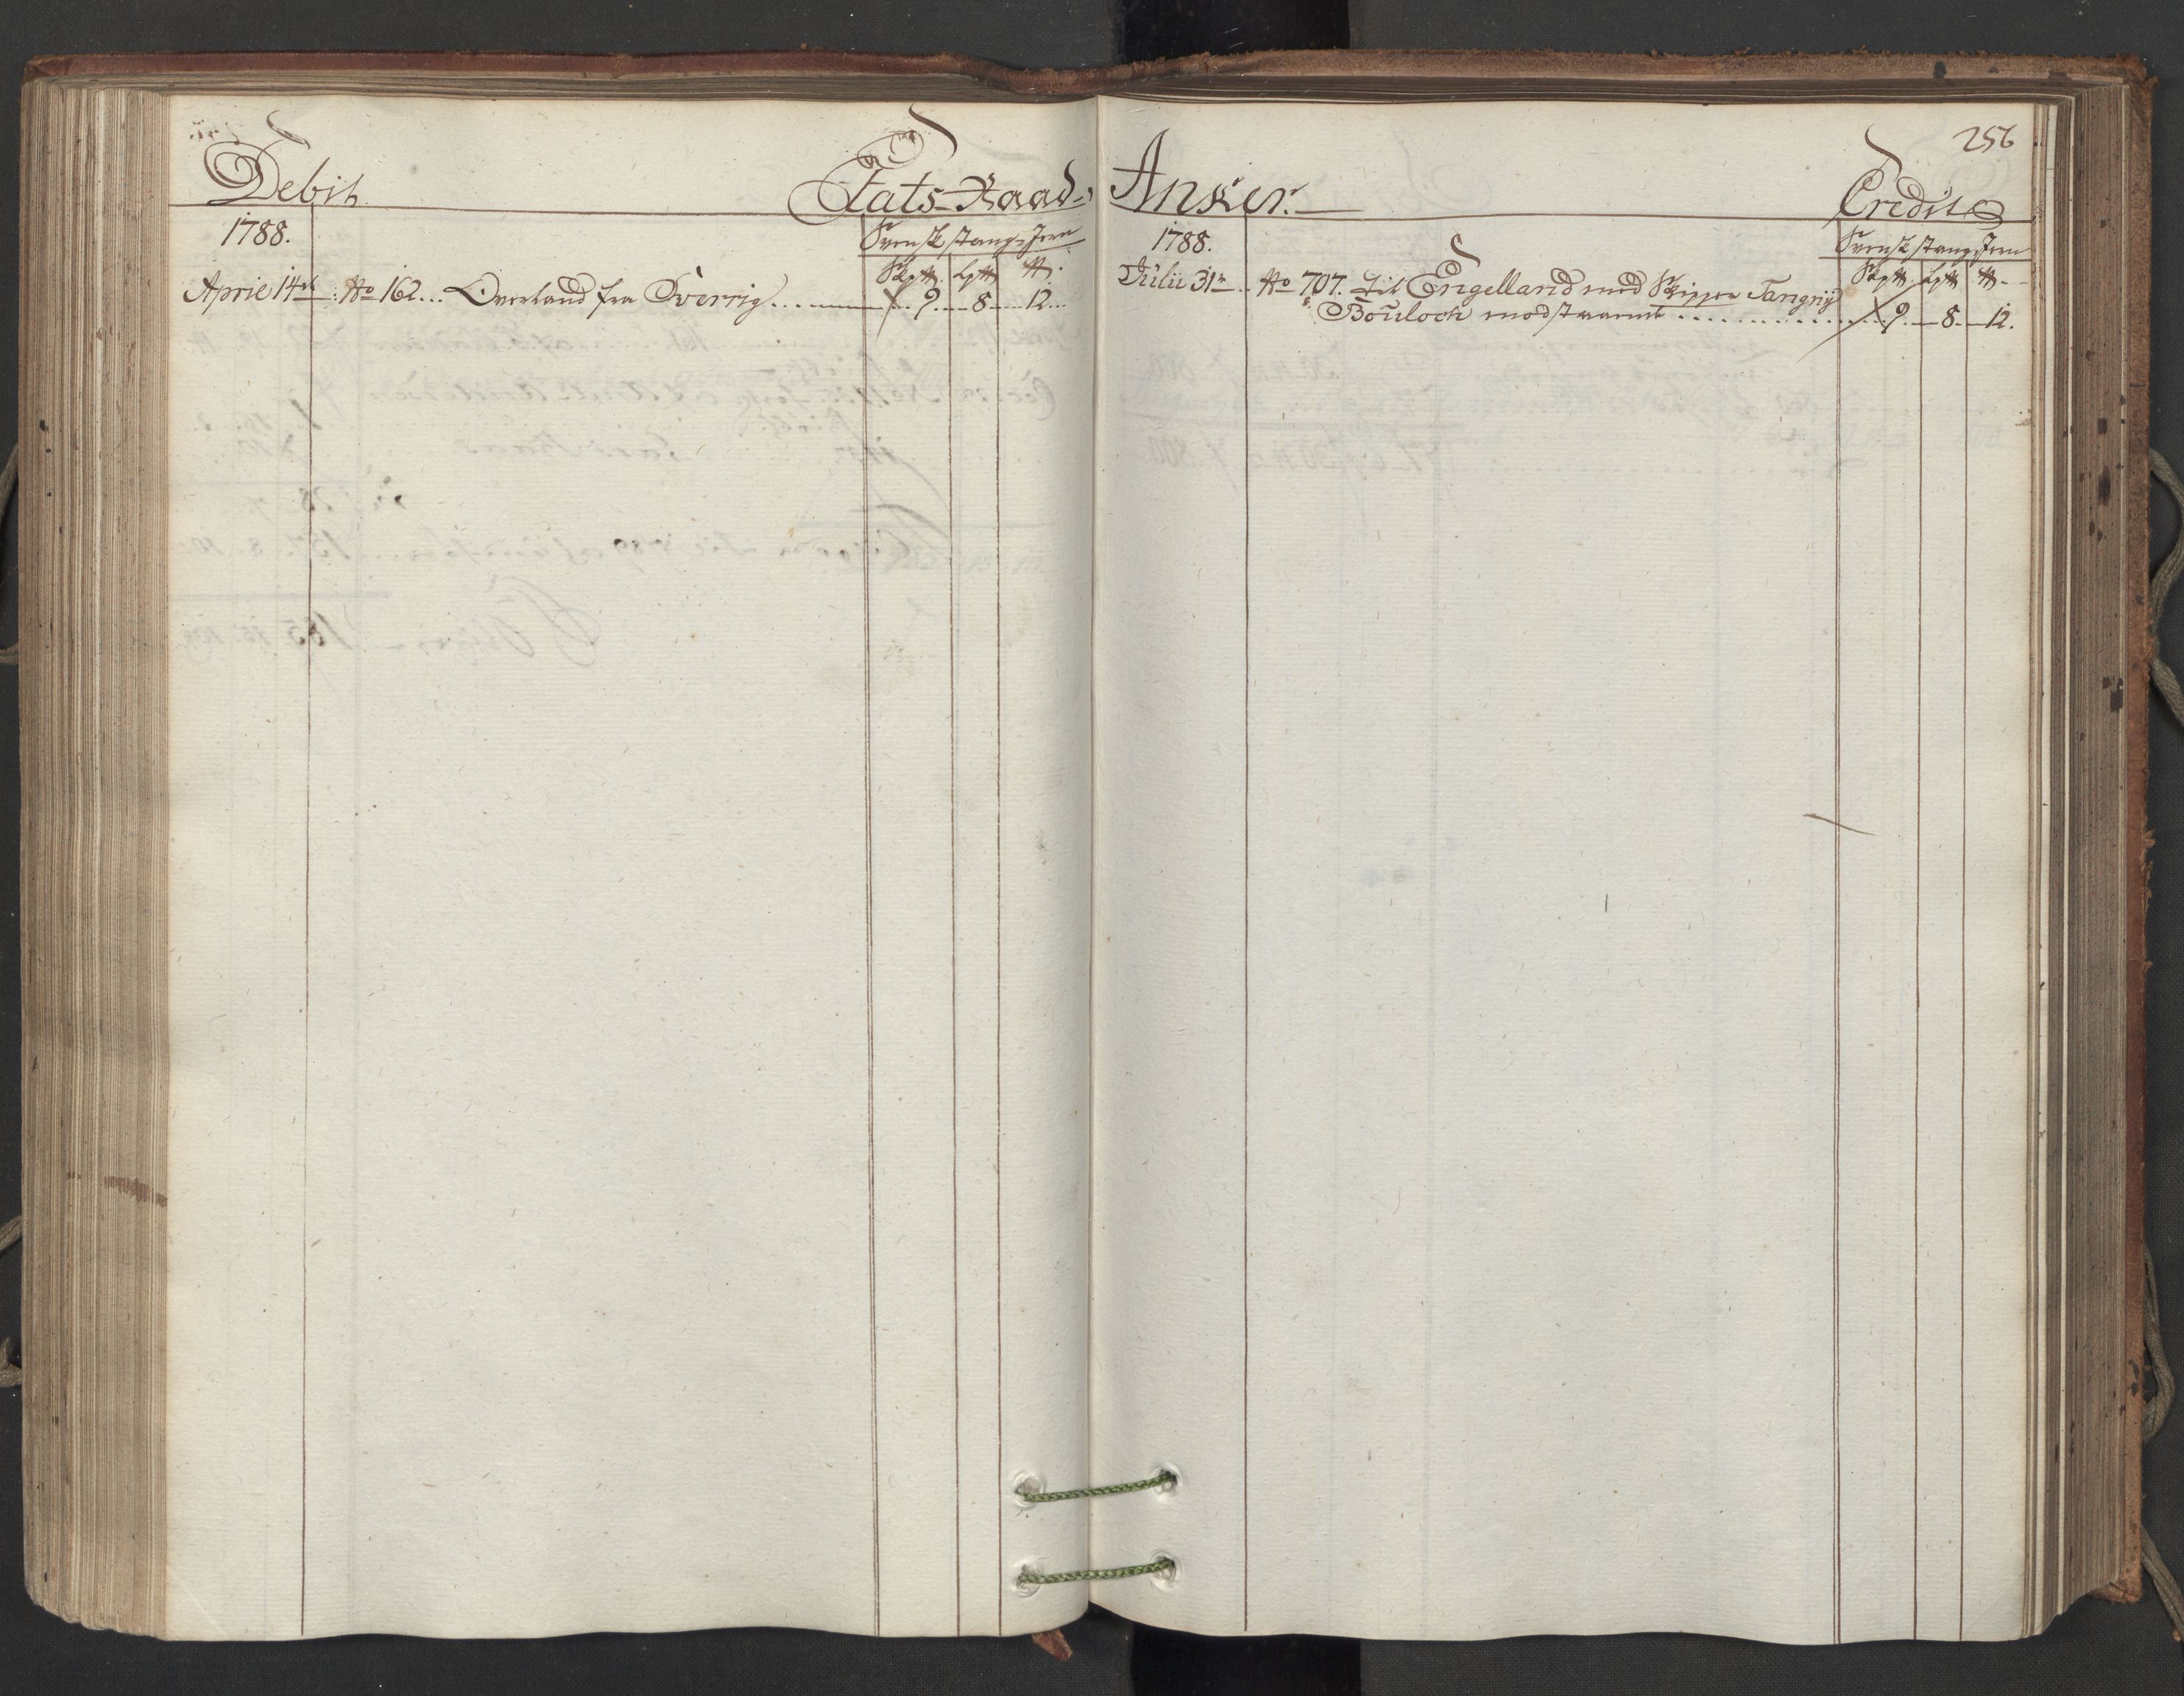 256
Debit. Etats-Raad Anker. Credit
1788. Svensk stang Jern
Skp℔. Lp℔ ℔.
April 14de No 162... Overland fra Sverrig ........ 9 8 12
1788. Svensk stang Jern
Skp℔ Lp℔ ℔
Julii 31te No 707. til Engelland med Skipper
Bouloch 9. 8 12.